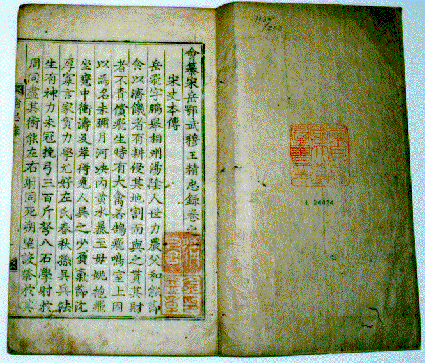 會纂宋岳鄂武穆王精忠錄卷之
宋史本傳
岳飛字鵬舉相州湯陰人世力農父和能節
食以濟饑者有耕侵其地割而與之貰其財
者不責償飛生時有大禽若鵠飛鳴室上因
以爲名未彌月河決內黃水暴至母姚抱飛
坐甕中衝濤及岸得免人異之少負氣節沈
厚寡言家貧力學尤好左氏春秋孫吳兵法
生有神力未冠挽弓三百斤弩八石學射於
周同盡其術能左右射同死朔望設祭於